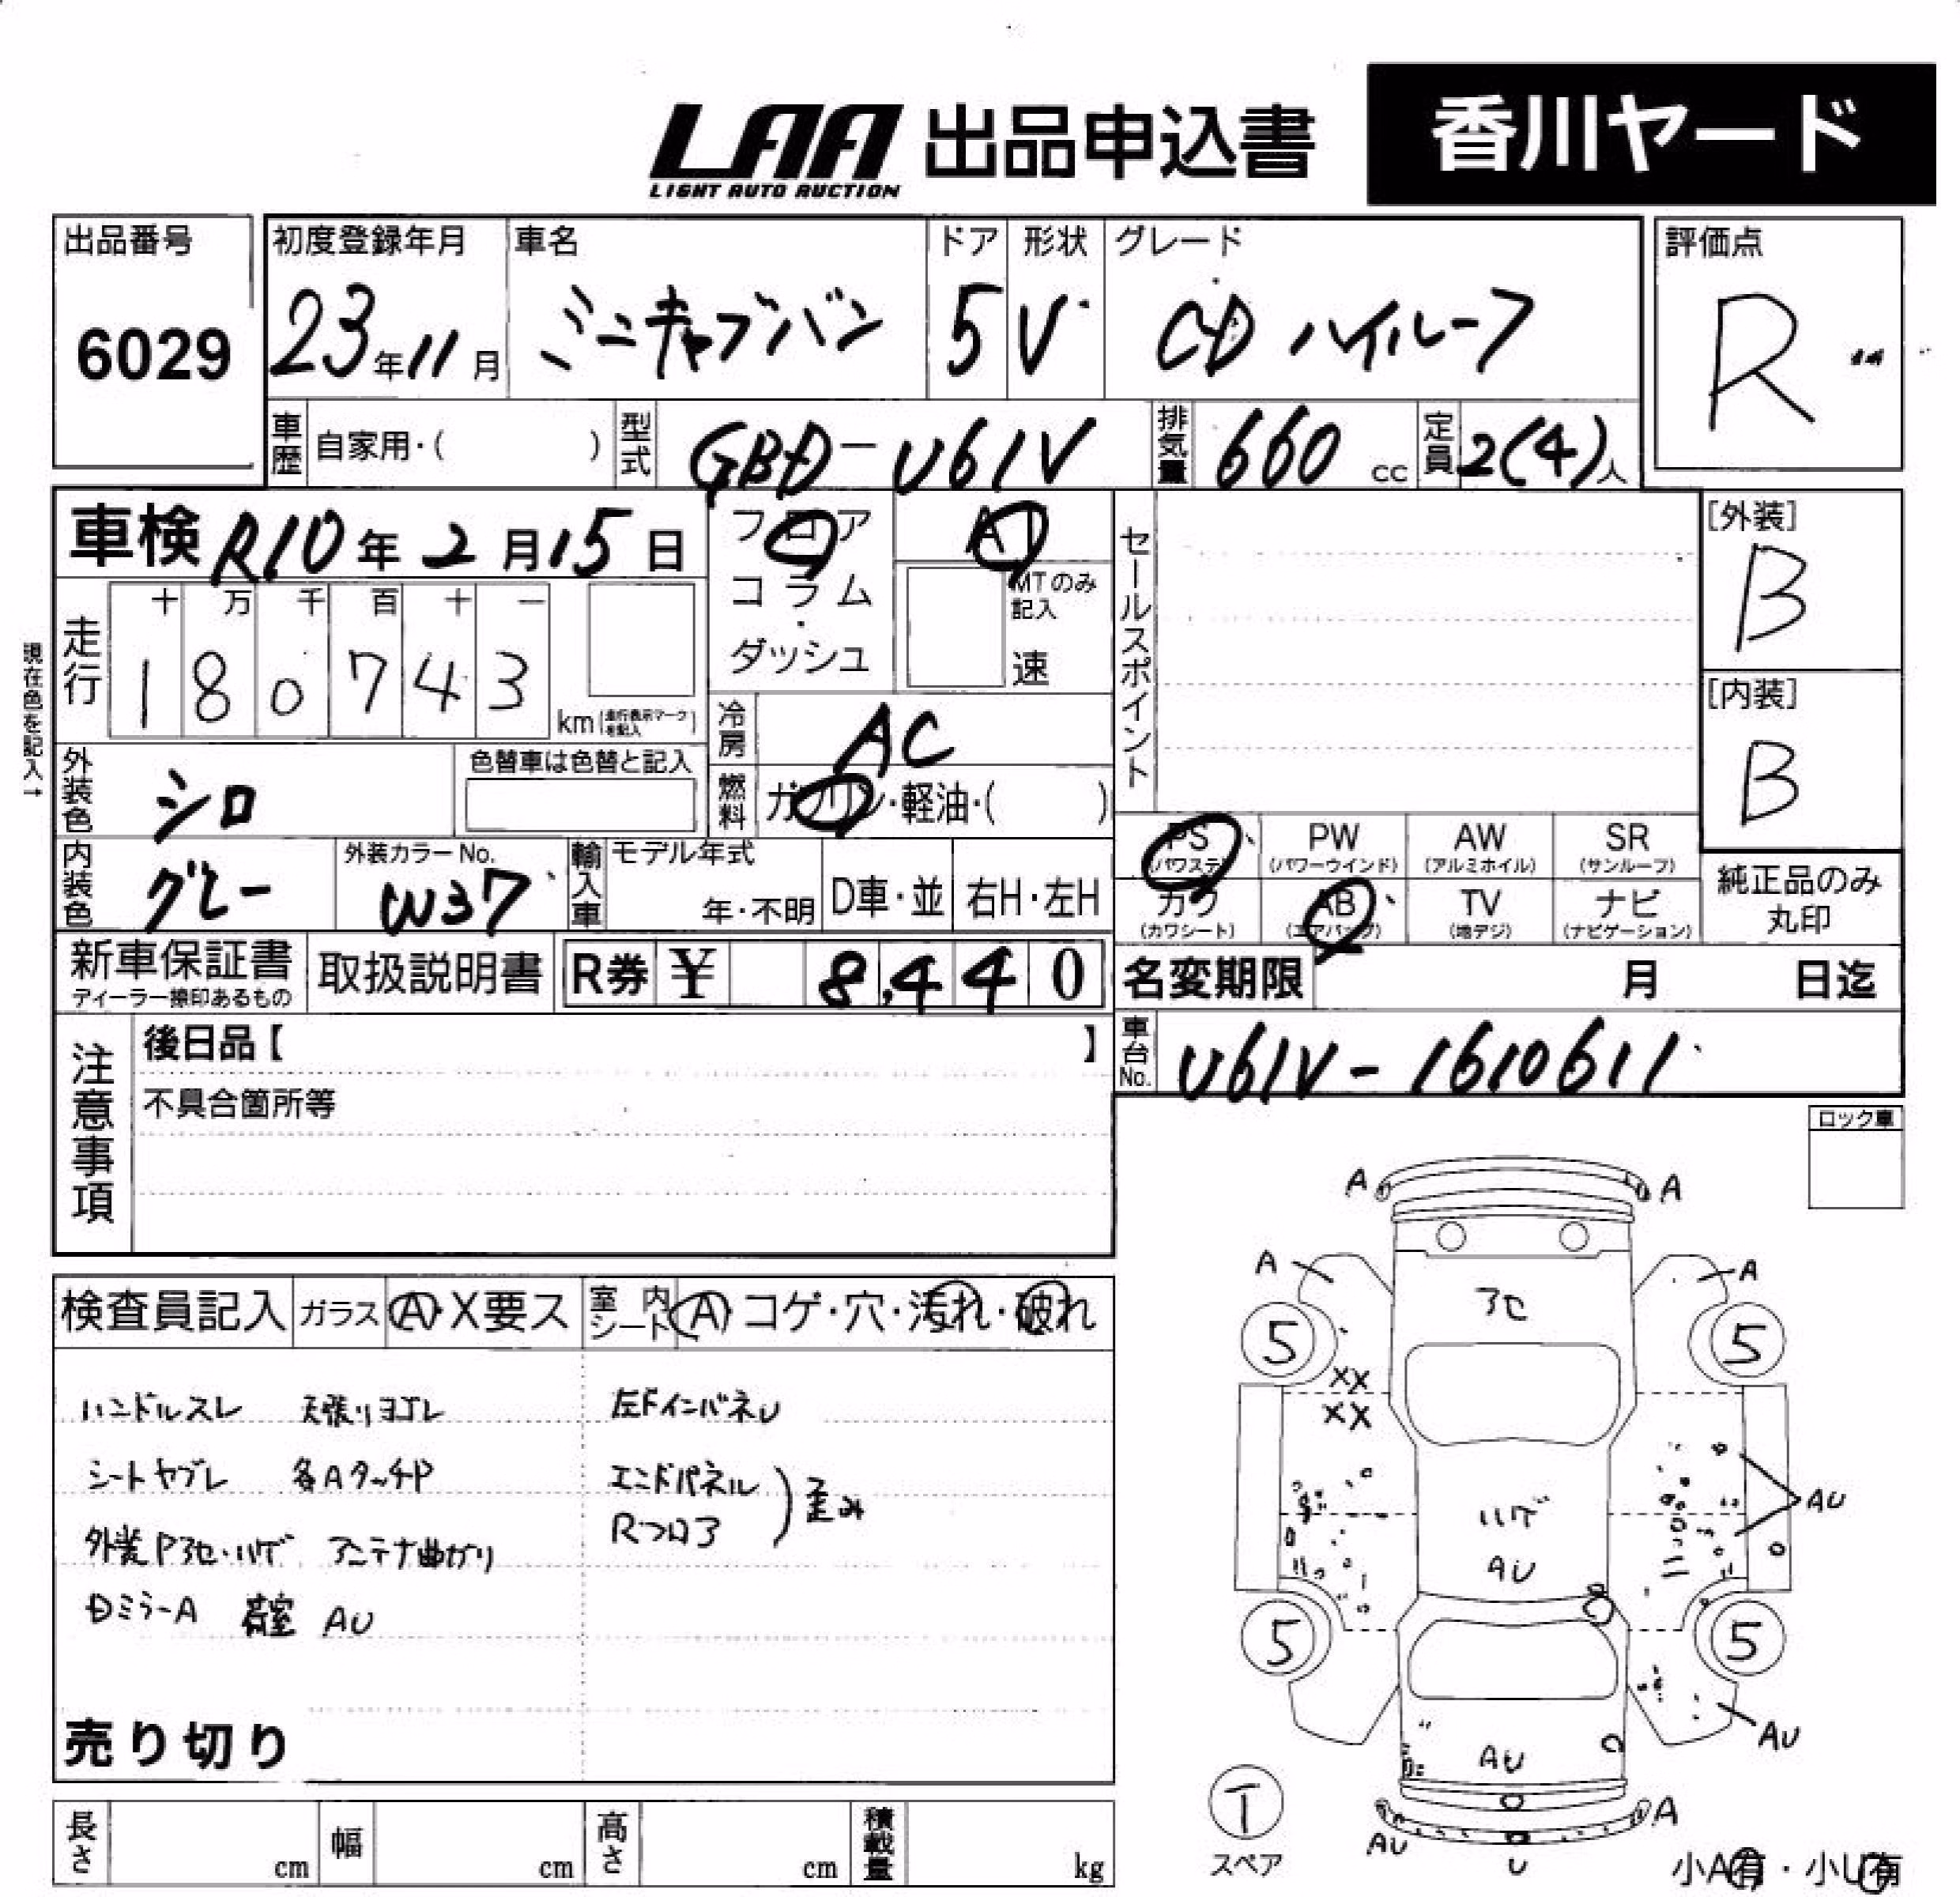 LAA 出品申込書 香川ヤード
LIGHT AUTO AUCTION
出品番号 初度登録年月 車名 ドア 形状 グレード 評価点
6029 23年11月 ミニキャブバン 5 V CD ハイルーフ R
車歴 自家用・( ) 型式 GBD-U61V 排気量 660 cc 定員 2(4)人
車検 R10年2月15日 フロア AT セールスポイント [外装]
B
コラム・ MTのみ記入
ダッシュ 速
走行 十 万 千 百 十 一
1 8 0 7 4 3 km (走行表示マークを記入) [内装]
B
現在色を記入→
冷房 AC
外装色 シロ 色替車は色替と記入 燃料 ガソリン・軽油・( )
PS PW AW SR
(パワステ) (パワーウインド) (アルミホイル) (サンルーフ)
内装色 グレー 外装カラーNo. W37 輸入車 モデル年式 年・不明 D車・並 右H・左H
カワ AB TV ナビ
(カワシート) (エアバッグ) (地デジ) (ナビゲーション)
純正品のみ
丸印
新車保証書 取扱説明書 R券 ¥ 8,440 名変期限 月 日迄
ディーラー捺印あるもの
注意事項 後日品【 】 車台No. U61V-1610611
不具合箇所等
ロック車
検査員記入 ガラス A・X要ス 室内シート A・コゲ・穴・汚れ・破れ
ハンドルスレ 天張りヨゴレ 左FインパネU
シートヤブレ 各AタッチP エンドパネル
Rフロア
歪み
外装Pアセ・ハゲ アンテナ曲がり
DミラーA 荷室 AU
売り切り
長さ cm 幅 cm 高さ cm 積載量 kg
A A
A A
アセ
5 5
XX
XX
AU
ハゲ
AU
5 5
AU
AU
T
スペア
A
AU
U
小A有・小U有